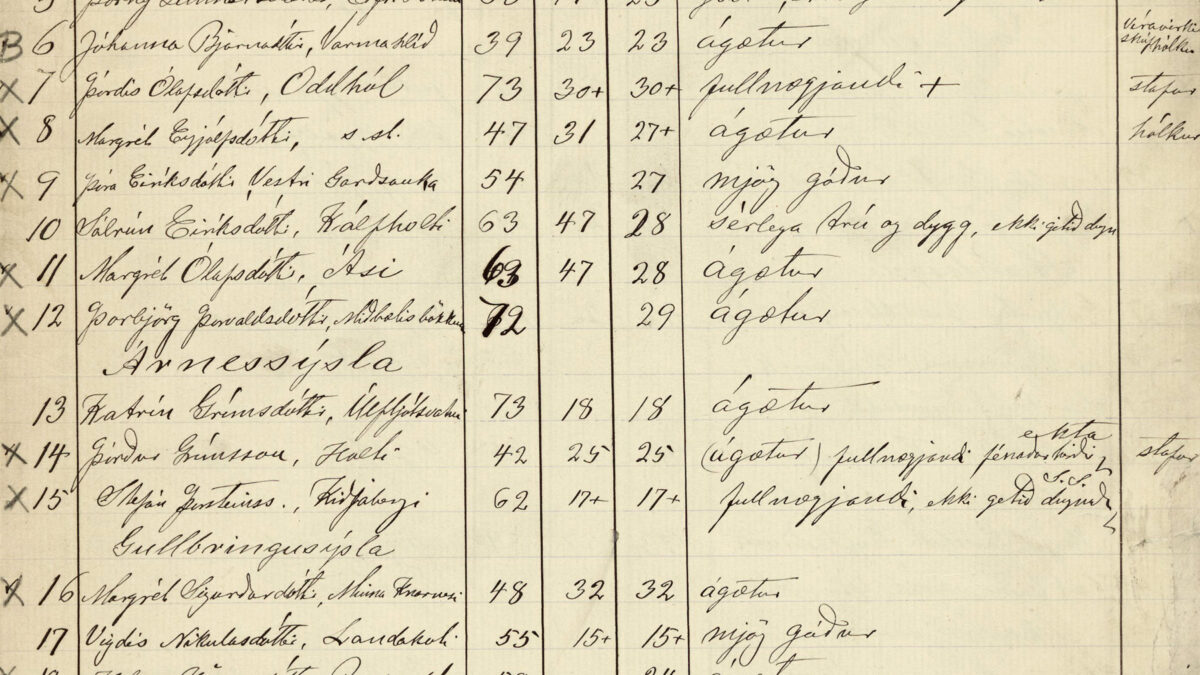 B 6 Jóhanna Bjarnadótti, Varmahlíð 39 23 23 ágætur
x 7 Þórdís Ólafsdótti, Oddhól 73 30+ 30+ fullnægjandi + stafur
x 8 Margrét Eyjólfsdótti, s. st. 47 31 27+ ágætur hólkur
x 9 Þóra Eiríksdótti Vestri Garðsauka 54 27 mjög góður
10 Sólrún Eiríksdótti, Kálfholti 63 47 28 sérlega trú og dygg, ekki getið dugn
x 11 Margrét Ólafsdótti, Ási 63 47 28 ágætur
x 12 Þorbjörg Þorvaldsdótti, Miðbælisbökkum 72 29 ágætur
Árnessýsla
13 Katrín Grímsdótti, Úlfljótsvatni 73 18 18 ágætur
ekta
x 14 Þórður Grímsson, Holti 42 25 25 (ágætur) fullnægjandi fénaðarhirði stafur
x 15 Stefán Þorsteinss., Kiðjabergi 62 17+ 17+ fullnægjandi, ekki getið dugnað
Gullbringusýsla
x 16 Margrét Sigurðardótti, Minna Knarrnesi 48 32 32 ágætur
17 Vigdís Nikulásdótti, Landakoti 55 15+ 15+ mjög góður